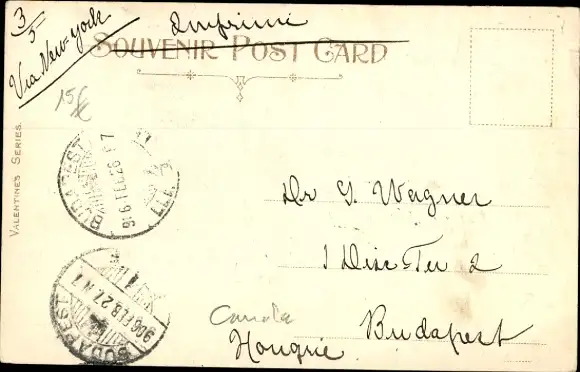 3/5
Via New-York
Imprimé
SOUVENIR POST CARD
VALENTINES SERIES.
BUDAPEST
916 FEB 26
BUDAPEST
906 FEB 27 N 7
Dr G. Wagner
1 Disz-Tér 2
Budapest
Canada
Hongrie